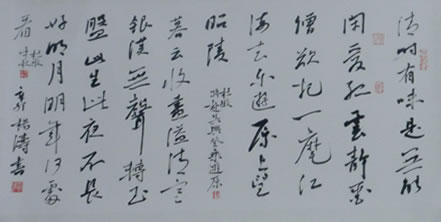 清时有味是无能
闲爱孤云静爱
僧欲把一麾江
海去乐游原上望
昭陵
杜牧
将赴吴兴登乐游原
暮云收尽溢清寒
银汉无声转玉
盘此生此夜不长
好明月明年何处
看
杨涛书